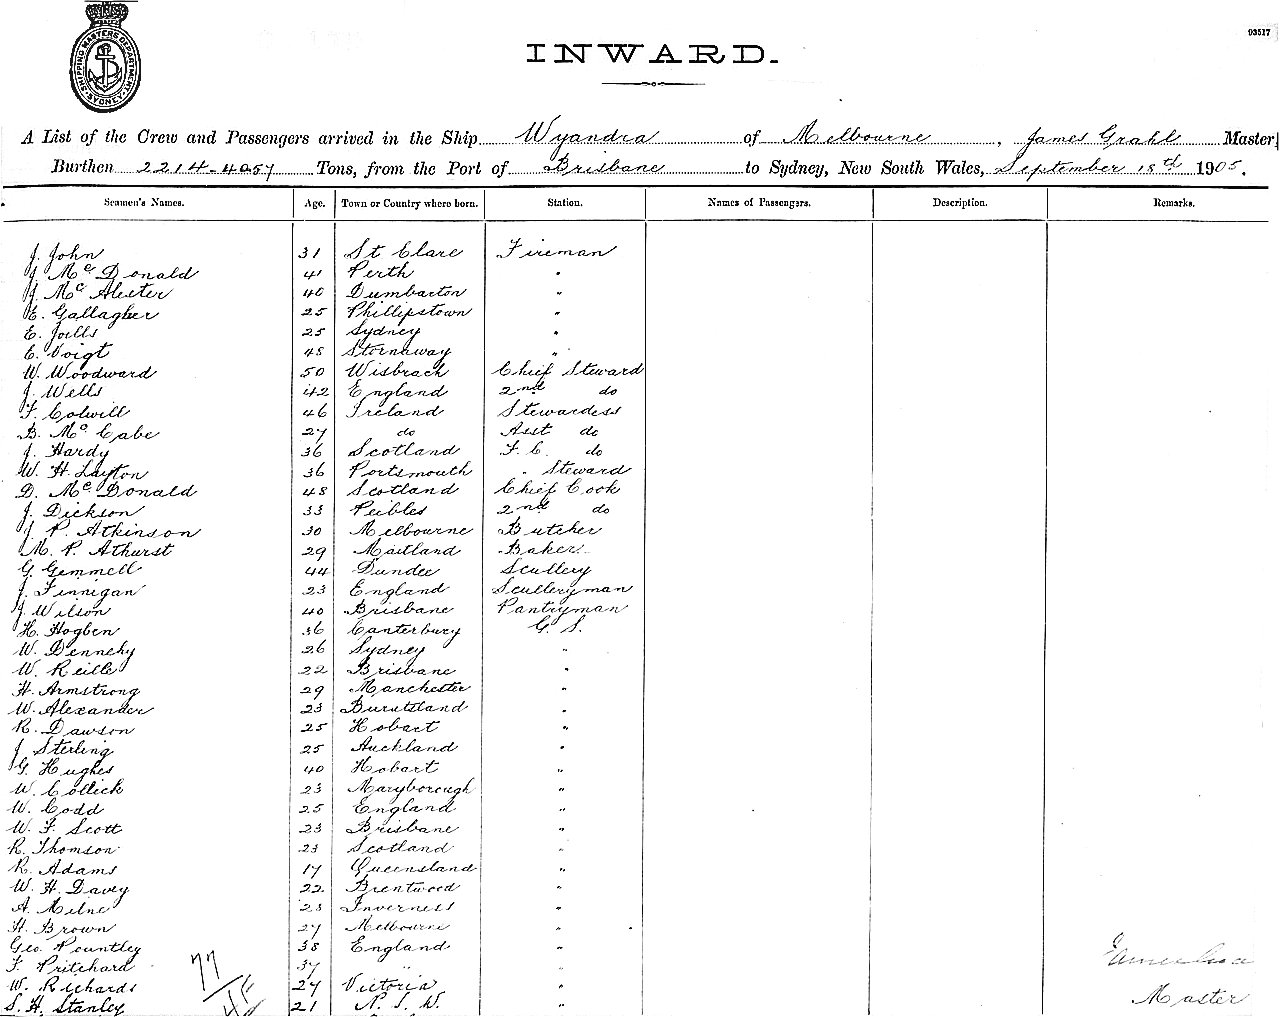 SHIPPING MASTERS DEPARTMENT SYDNEY
93517
INWARD.
A List of the Crew and Passengers arrived in the Ship Wyandra of Melbourne, James Grahl Master
Burthen 2214-4057 Tons, from the Port of Brisbane to Sydney, New South Wales, September 18th 1905.
Seamen's Names. Age. Town or Country where born. Station. Names of Passengers. Description. Remarks.
J. John 31 St Clare Fireman
J. McDonald 41 Perth "
J. McAlister 40 Dumbarton "
E. Gallagher 25 Phillipstown "
E. Joells 25 Sydney "
E. Voigt 48 Stornaway "
W. Woodward 50 Wisbrach Chief Steward
J. Wells 42 England 2nd do
F. Colwill 46 Ireland Stewardess
B. McCabe 27 do Asst do
J. Hardy 36 Scotland F. C. do
W. H. Layton 36 Portsmouth " Steward
D. McDonald 48 Scotland Chief Cook
J. Dickson 33 Peibles 2nd do
J. P. Atkinson 30 Melbourne Butcher
M. P. Athurst 29 Maitland Baker
G. Gemmell 44 Dundee Scullery
J. Finnigan 23 England Sculleryman
J. Wilson 40 Brisbane Pantryman
H. Hogben 36 Canterbury G. S.
W. Dennehy 26 Sydney "
W. Reille 22 Brisbane "
H. Armstrong 29 Manchester "
W. Alexander 23 "
R. Dawson 25 Hobart "
J. Sterling 25 Auckland "
G. Hughes 40 Hobart "
W. Collick 23 Maryborough "
W. Codd 25 England "
W. F. Scott 23 Brisbane "
R. Thomson 23 Scotland "
R. Adams 17 Queensland "
W. H. Davey 22 Brentwood "
A. Milne 23 Inverness "
H. Brown 27 Melbourne "
Geo. Pountley 38 England "
F. Pritchard 37 " "
W. Richards 27 Victoria "
S. H. Stanley 21 N. S. W. "
77
Master